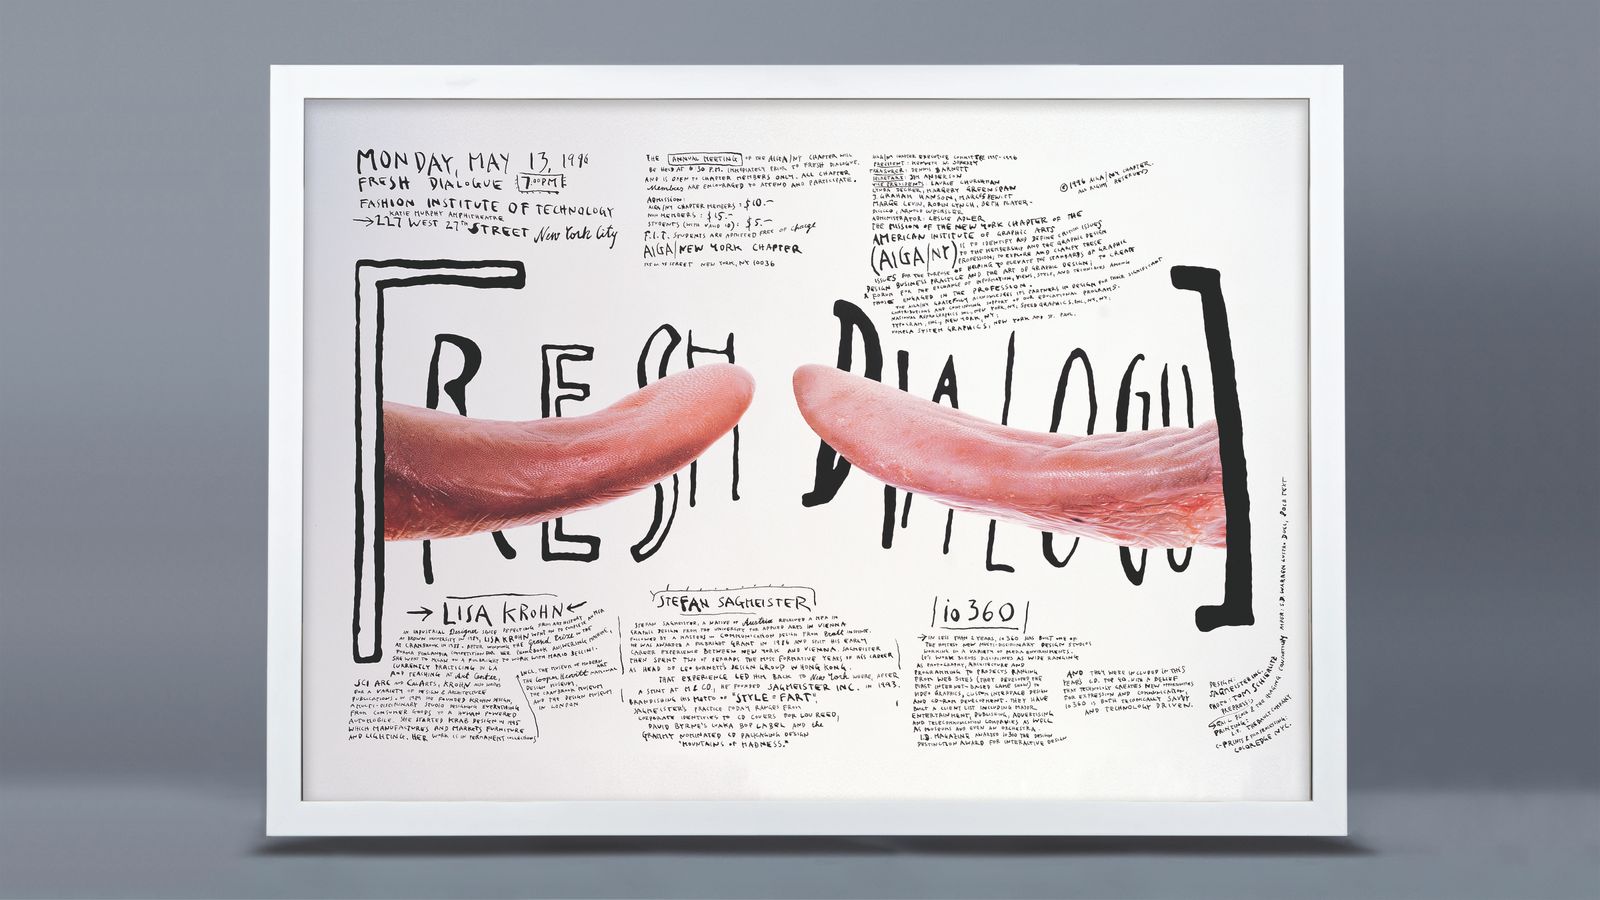 MONDAY, MAY 13, 1996
FRESH DIALOGUE 7:00PM
FASHION INSTITUTE OF TECHNOLOGY
KATIE MURPHY AMPHITHEATRE
→227 WEST 27TH STREET New York City
THE ANNUAL MEETING OF THE AIGA/NY CHAPTER WILL
BE HELD AT 6:30 P.M. IMMEDIATELY PRIOR TO FRESH DIALOGUE.
AND IS OPEN TO CHAPTER MEMBERS ONLY. ALL CHAPTER
Members ARE ENCOURAGED TO ATTEND AND PARTICIPATE.
ADMISSION:
AIGA/NY CHAPTER MEMBERS: $10.-
NON MEMBERS: $15.-
STUDENTS (WITH VALID ID): $5.-
F.I.T. STUDENTS ARE ADMITTED FREE OF charge
AIGA/NEW YORK CHAPTER
STREET NEW YORK, NY 10036
AIGA/NY CHAPTER EXECUTIVE COMMITTEE 1995-1996
PRESIDENT:
TREASURER: DENNIS BARNETT
SECRETARY: JIM ANDERSON
VICE PRESIDENTS: LAURIE CHURCHMAN
MARGERY GREENSPAN
J. GRAHAM HANSON,
MARGE LEVIN, ROBIN LYNCH, BETH
ADMINISTRATOR: LESLIE ADLER
THE MISSION OF THE NEW YORK CHAPTER OF THE
AMERICAN INSTITUTE OF GRAPHIC ARTS
(AIGA/NY) IS TO IDENTIFY AND DEFINE CRITICAL ISSUES
TO THE MEMBERSHIP AND THE GRAPHIC DESIGN
PROFESSION; TO EXPLORE AND CLARIFY THESE
ISSUES FOR THE PURPOSE OF HELPING TO ELEVATE THE STANDARDS OF GRAPHIC
DESIGN BUSINESS PRACTICE AND THE ART OF GRAPHIC DESIGN; TO CREATE
A FORUM FOR THE EXCHANGE OF INFORMATION, VIEWS, STYLE, AND TECHNIQUES AMONG
THOSE ENGAGED IN THE PROFESSION.
THE AIGA/NY GRATEFULLY ACKNOWLEDGES ITS PARTNERS IN DESIGN FOR THEIR SIGNIFICANT
CONTRIBUTIONS AND CONTINUING SUPPORT OF OUR EDUCATIONAL PROGRAMS.
NATIONAL REPROGRAPHICS INC., NEW YORK, NY; SPEED GRAPHICS, INC., NY, NY;
TYPOGRAM, INC., NEW YORK, NY;
SYSTEM GRAPHICS, NEW YORK AND ST. PAUL.
©1996 AIGA/NY CHAPTER.
ALL RIGHTS RESERVED
[FRESH DIALOGU]
→LISA KROHN←
AN INDUSTRIAL Designer SINCE DEFECTING FROM ART HISTORY
AT BROWN UNIVERSITY IN 1985, LISA KROHN WENT ON TO COMPLETE AN MFA
AT CRANBROOK IN 1988. AFTER WINNING THE Grand Prize IN THE
FORMA FINLANDIA COMPETITION FOR HER PHONEBOOK ANSWERING MACHINE,
SHE WENT TO MILAN ON A FULBRIGHT TO WORK WITH MARIO BELLINI.
CURRENTLY PRACTICING IN LA
AND TEACHING AT Art Center,
SCI ARC AND CALARTS, KROHN ALSO WRITES
FOR A VARIETY OF DESIGN & ARCHITECTURE
PUBLICATIONS. IN 1989 SHE FOUNDED KROHN DESIGN,
A MULTI-DISCIPLINARY STUDIO DESIGNING EVERYTHING
FROM CONSUMER GOODS TO A HUMAN POWERED
AUTOMOBILE. SHE STARTED KRAB DESIGN IN 1995
WHICH MANUFACTURES AND MARKETS FURNITURE
AND LIGHTING. HER WORK IS IN PERMANENT COLLECTIONS
INCL. THE MUSEUM OF MODERN ART
THE Cooper Hewitt NATIONAL
DESIGN MUSEUM
THE CRANBROOK MUSEUM
AND THE DESIGN MUSEUM
IN LONDON
STEFAN SAGMEISTER
STEFAN SAGMEISTER, A NATIVE OF Austria RECEIVED A MFA IN
GRAPHIC DESIGN FROM THE UNIVERSITY FOR APPLIED ARTS IN VIENNA
FOLLOWED BY A MASTERS IN COMMUNICATION DESIGN FROM Pratt INSTITUTE.
HE WAS AWARDED A FULBRIGHT GRANT IN 1986 AND SPLIT HIS EARLY
CAREER EXPERIENCE BETWEEN NEW YORK AND VIENNA. SAGMEISTER
THEN SPENT TWO OF PERHAPS THE MOST FORMATIVE YEARS OF HIS CAREER
AS HEAD OF LEO BURNETT'S DESIGN GROUP IN HONG KONG.
THAT EXPERIENCE LED HIM BACK TO New York WHERE, AFTER
A STINT AT M&CO., HE FOUNDED SAGMEISTER INC. IN 1993.
BRANDISHING HIS MOTTO OF "STYLE=FART",
SAGMEISTER'S PRACTICE TODAY RANGES FROM
CORPORATE IDENTITIES TO CD COVERS FOR LOU REED,
DAVID BYRNE'S LUAKA BOP LABEL AND the
GRAMMY NOMINATED CD PACKAGING DESIGN
"MOUNTAINS OF MADNESS."
|io 360|
→IN LESS THAN 2 YEARS, io 360 HAS BUILT ONE OF
THE HOTTEST NEW MULTI-DISCIPLINARY DESIGN STUDIOS
WORKING IN A VARIETY OF MEDIA ENVIRONMENTS.
IO'S WORK BLENDS DISCIPLINES AS WIDE RANGING
AS PHOTOGRAPHY, ARCHITECTURE AND
PROGRAMMING TO PROJECTS RANGING
FROM WEB SITES (THEY DEVELOPED THE
FIRST INTERNET-BASED GAME SHOW) TO
VIDEO GRAPHICS, CUSTOM INTERFACE DESIGN
AND CD-ROM DEVELOPMENT. THEY HAVE
BUILT A CLIENT LIST INCLUDING MAJOR
ENTERTAINMENT, PUBLISHING, ADVERTISING
AND TELECOMMUNICATION COMPANIES AS WELL
AS MUSEUMS AND EVEN AN ORCHESTRA.
I.D. MAGAZINE AWARDED io 360 THE DESIGN
DISTINCTION AWARD FOR INTERACTIVE DESIGN
AND THEY WERE INCLUDED IN THIS
YEARS I.D. TOP 40. WITH A BELIEF
THAT TECHNOLOGY CREATES NEW OPPORTUNITIES
FOR EXPRESSION AND COMMUNICATION,
io 360 IS BOTH TECHNICALLY SAVVY
AND TECHNOLOGY DRIVEN.
DESIGN:
SAGMEISTER INC.
PHOTO: TOM SCHIERLITZ
PRINTING:
C-PRINTS & RETOUCHING:
COLOREDGE NYC.
PAPER: S.D. WARREN LUSTRO DULL, 80LB TEXT